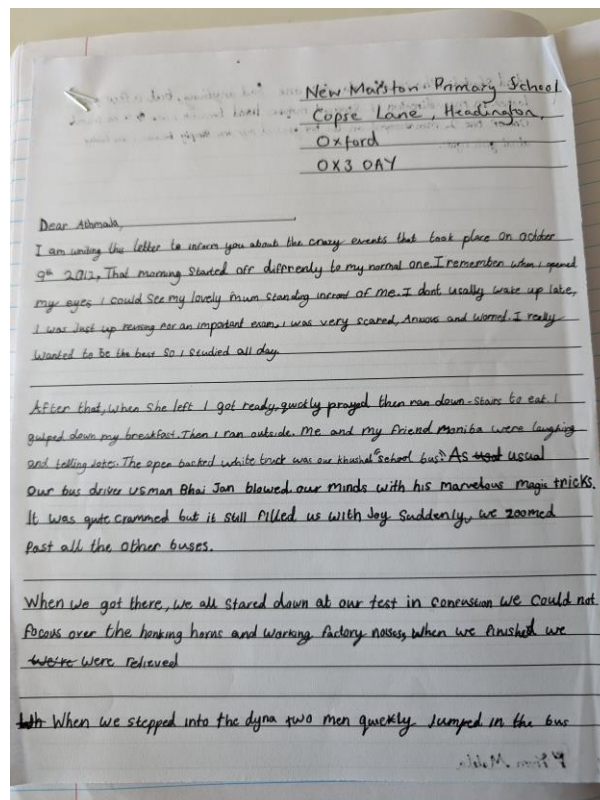 New Marston Primary School
Copse Lane, Headington,
Oxford
OX3 0AY
Dear Athmada,
I am writing this letter to inform you about the crazy events that took place on October
9th 2012, That morning started off diffrenly to my normal one. I remember when I opened
my eyes I could see my lovely mum standing infront of me. I dont usally wake up late,
I was just up revising for an important exam, I was very scared, Anxious and worried. I really
wanted to be the best so I studied all day.
After that, when she left I got ready, quckly prayed then ran down-stairs to eat. I
gulped down my breakfast. Then I ran outside. Me and my friend Moniba were laughing
and telling jokes. The open backed white truck was our khushal "school bus". As usual
our bus driver usman Bhai Jan blowed our minds with his marvelous magic tricks.
It was qute crammed but it still filled us with Joy Suddenly, we zoomed
past all the other buses.
When we got there, we all stared down at our test in concussion we could not
focous over the honking horns and working factory noises, when we finished we
were relieved
When we stepped into the dyna two men quickly Jumped in the bus